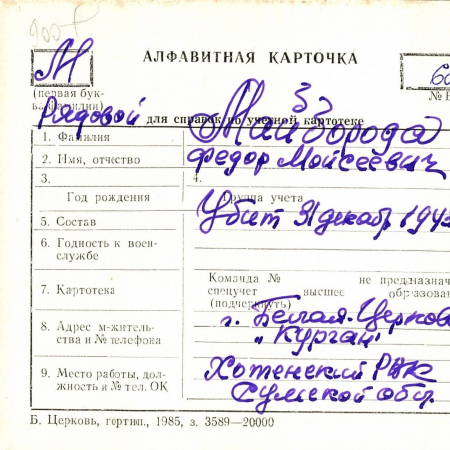 М
АЛФАВИТНАЯ КАРТОЧКА
(первая бук-
ва фамилии)
№
Рядовой
для справок по учетной картотеке
1. Фамилия Майборода
2. Имя, отчество Федор Моисеевич
3. 4.
Год рождения Группа учета
5. Состав Убит 31 декабр 194
6. Годность к воен-
службе
Команда № не предназнач
7. Картотека спецучет высшее образова
(подчеркнуть)
8. Адрес м-житель-
ства и № телефона
г. Белая-Церков
„Курган"
9. Место работы, дол-
жность и № тел. ОК
Хотенский РВК
Сумской обл.
Б. Церковь, гортип., 1985, з. 3589—20000